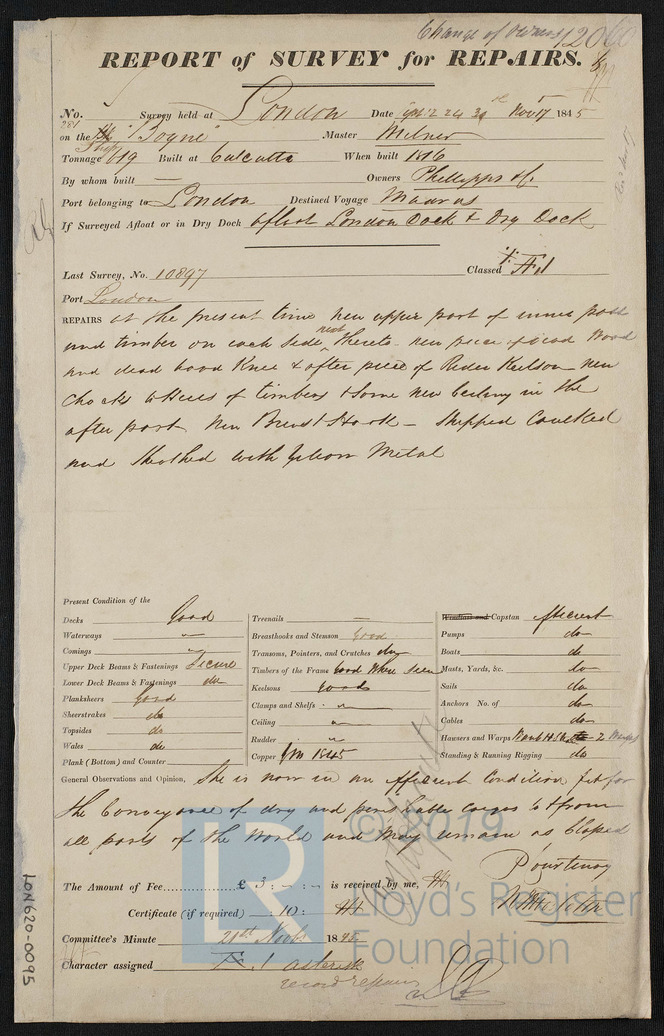 Change of Owners 12060
REPORT of SURVEY for REPAIRS.
No. 281 Survey held at London Date 24 Novr 17 1845
on the Ship "Boyne" Master Milner
Tonnage 619 Built at Calcutta When built 1816
By whom built — Owners Phillipps &c.
Port belonging to London Destined Voyage Madras
If Surveyed Afloat or in Dry Dock afloat London Dock & Dry Dock
Last Survey, No. 10897 Classed Æ1
Port London
REPAIRS at the present time new upper part of inner post
and timber on each side next thereto - new piece of dead wood
and dead wood Knee & after piece of Rider Keelson - new
chocks to Heels of timbers & some new Ceiling in the
after part. New Breast Hook - Stripped Caulked
and Sheathed with Yellow Metal
Present Condition of the
Decks Good
Waterways "
Comings "
Upper Deck Beams & Fastenings Secure
Lower Deck Beams & Fastenings do
Planksheers Good
Sheerstrakes do
Topsides do
Wales do
Plank (Bottom) and Counter
Treenails —
Breasthooks and Stemson Good
Transoms, Pointers, and Crutches do
Timbers of the Frame Good when seen
Keelsons good
Clamps and Shelfs "
Ceiling "
Rudder "
Copper Y M 1845
Windlass and Capstan efficient
Pumps do
Boats do
Masts, Yards, &c. do
Sails do
Anchors No. of do
Cables do
Hawsers and Warps 2 Warps
Standing & Running Rigging do
General Observations and Opinion, She is now in an efficient Condition fit for
the Conveyance of dry and perishable cargoes to & from
all parts of the World and may remain as Classed
P Courtenay
The Amount of Fee............£ 3 : - : - is received by me,
Certificate (if required) : 10 :
Committee's Minute 21st Novbr 1845
Character assigned Æ. 1 asterisk
record repairs
LON620-0095
© 2019
Lloyd's Register
Foundation
LR